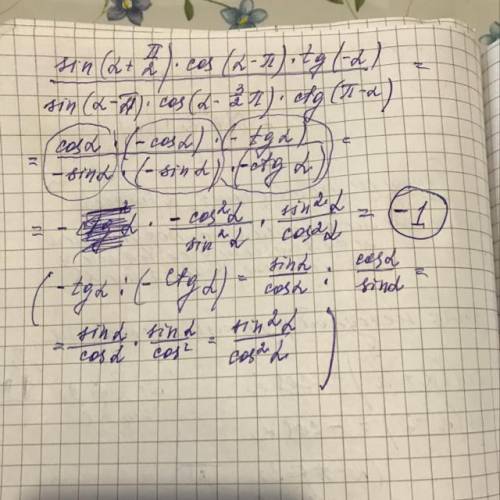 sin(α+π/2)·cos(α-π)·tg(-α)
=
sin(α-π)·cos(α-3/2π)·ctg(π-α)
= cosα·(-cosα)·(-tgα) =
-sinα·(-sinα)·(-ctgα)
= - · -cos²α/sin²α · sin²α/cos²α = -1
(-tgα : (-ctgα) = sinα/cosα : cosα/sinα =
= sinα/cosα · sinα/cos² = sin²α/cos²α)